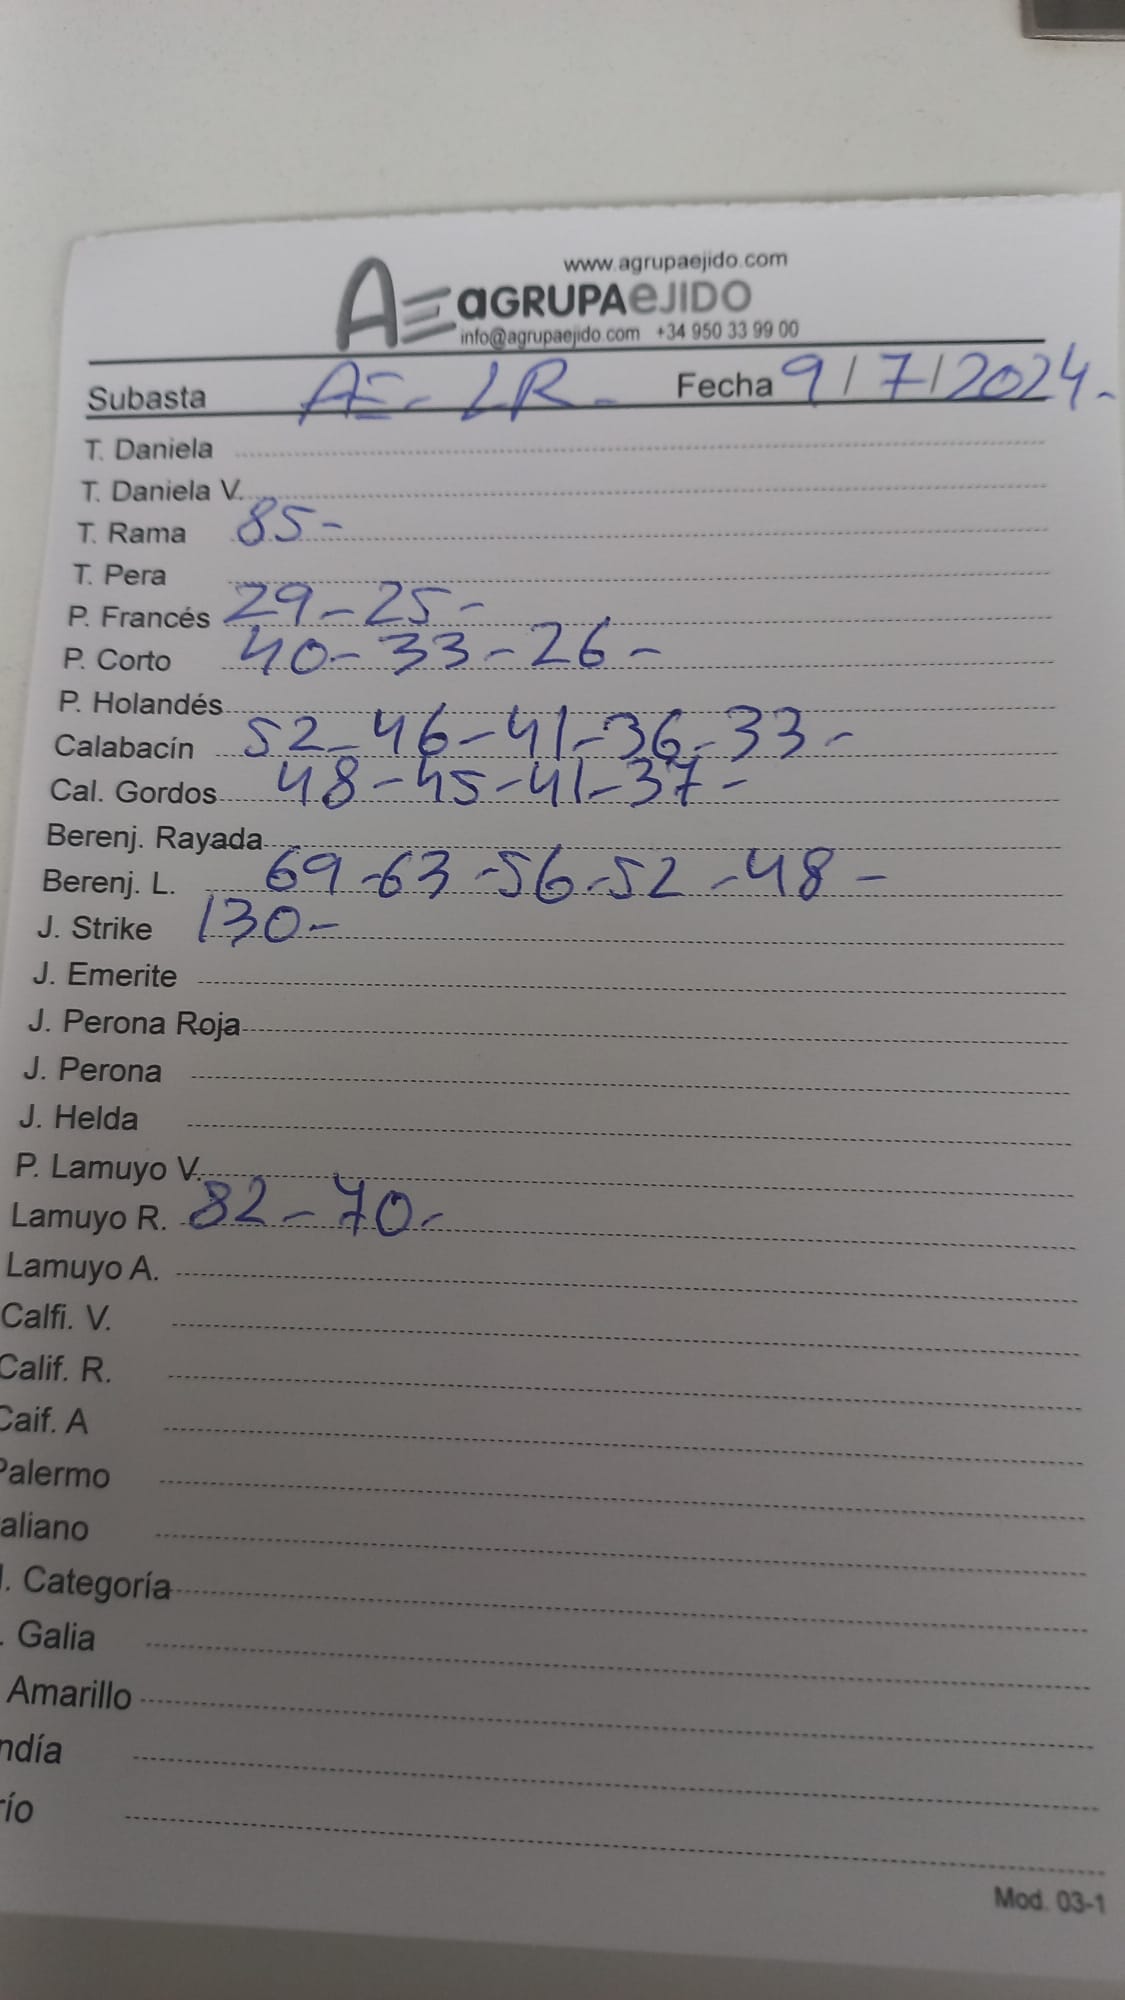 www.agrupaejido.com
AE aGRUPAeJIDO
info@agrupaejido.com +34 950 33 99 00
Subasta AE- LR- Fecha 9/7/2024-
T. Daniela
T. Daniela V.
T. Rama 85-
T. Pera
P. Francés 29-25-
P. Corto 40-33-26-
P. Holandés
Calabacín 52-46-41-36-33-
Cal. Gordos 48-45-41-37-
Berenj. Rayada
Berenj. L. 69-63-56-52-48-
J. Strike 130-
J. Emerite
J. Perona Roja
J. Perona
J. Helda
P. Lamuyo V.
Lamuyo R. 82-70-
Lamuyo A.
Calfi. V.
Calif. R.
Caif. A
Palermo
aliano
. Categoría
. Galia
Amarillo
ndía
río
Mod. 03-1